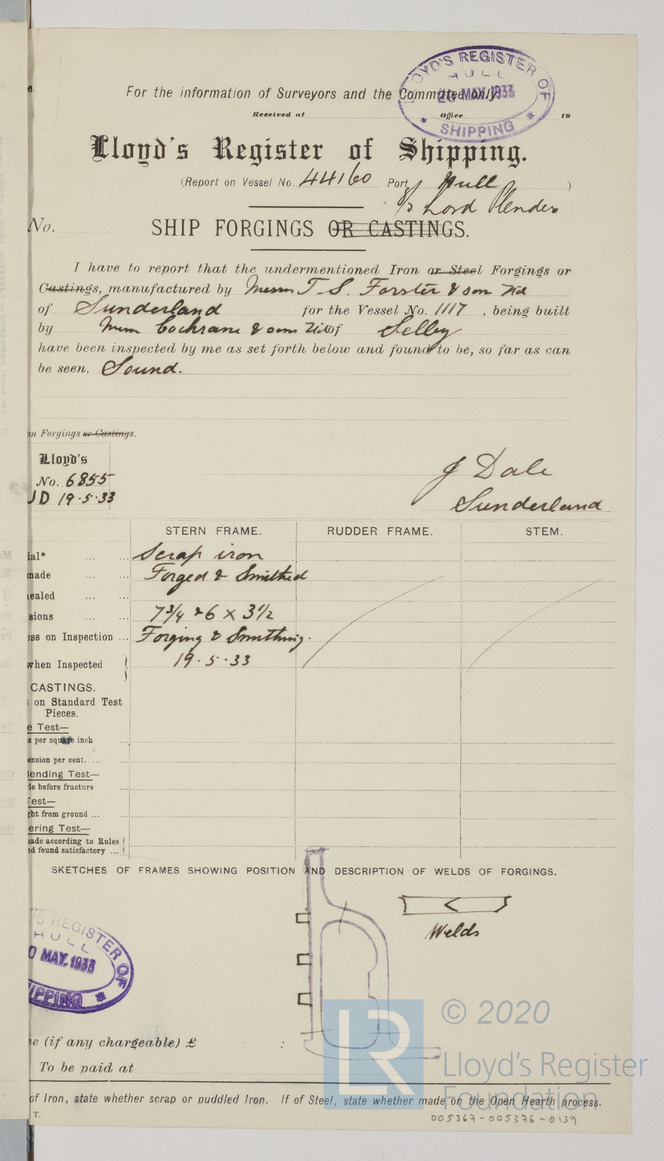 For the information of Surveyors and the Committee only.
LLOYD'S REGISTER OF
HULL
20 MAY. 1933
SHIPPING
Received at Office 19
Lloyd's Register of Shipping.
(Report on Vessel No. 44160 Port Hull )
S/S Lord Plender
No.
SHIP FORGINGS OR CASTINGS.
I have to report that the undermentioned Iron or Steel Forgings or
Castings, manufactured by Messrs T. S. Forster & Son Ltd
of Sunderland for the Vessel No. 1117 , being built
by Messrs Cochrane & Sons Ltd of Selby
have been inspected by me as set forth below and found to be, so far as can
be seen, Sound.
on Forgings or Castings.
Lloyd's
No. 6855
JD 19.5.33
J Dale
Sunderland
STERN FRAME. RUDDER FRAME. STEM.
ial* ... ... Scrap iron
made ... ... Forged & Smithed
ealed ... ...
sions ... ... 7 3/4 & 6 x 3 1/2
ess on Inspection ... Forging & Smithing.
when Inspected 19.5.33
CASTINGS.
on Standard Test
Pieces.
e Test—
s per square inch ...
ension per cent. ... ...
ending Test—
le before fracture ...
Test—
ght from ground ... ...
ering Test—
ade according to Rules
nd found satisfactory ...
SKETCHES OF FRAMES SHOWING POSITION AND DESCRIPTION OF WELDS OF FORGINGS.
Welds
D'S REGISTER OF
HULL
0 MAY. 1933
IPPING
ee (if any chargeable) £ :
To be paid at
of Iron, state whether scrap or puddled Iron. If of Steel, state whether made on the Open Hearth process.
T.
005367-005376-0139
LR
© 2020
Lloyd's Register
Foundation